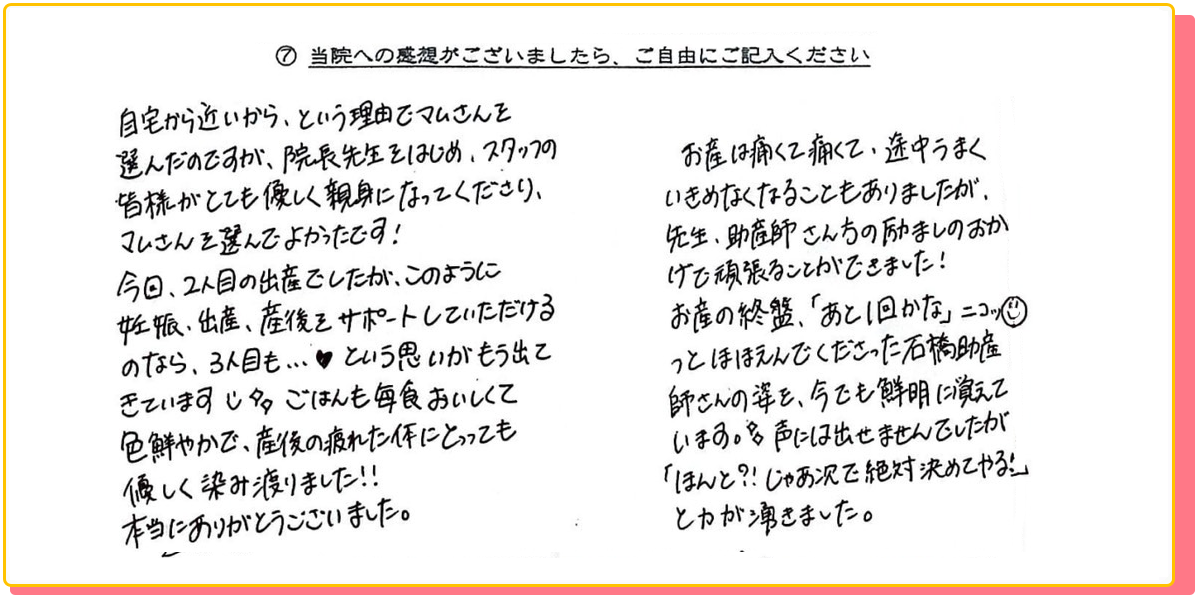 ⑦ 当院への感想がございましたら、ご自由にご記入ください
自宅から近いから、という理由でマムさんを
選んだのですが、院長先生をはじめ、スタッフの
皆様がとても優しく親身になってくださり、
マムさんを選んでよかったです!
今回、2人目の出産でしたが、このように
妊娠、出産、産後をサポートしていただける
のなら、3人目も…♥という思いがもう出て
きています ごはんも毎食おいしくて
色鮮やかで、産後の疲れた体にとっても
優しく染み渡りました!!
本当にありがとうございました。
お産は痛くて痛くて、途中うまく
いきめなくなることもありましたが、
先生、助産師さん方の励ましのおか
げで頑張ることができました!
お産の終盤、「あと1回かな」ニコッ☺
っとほほえんでくださった石橋助産
師さんの姿を、今でも鮮明に覚えて
います。声には出せませんでしたが
「ほんと?!じゃあ次で絶対決めてやる!」
と力が湧きました。